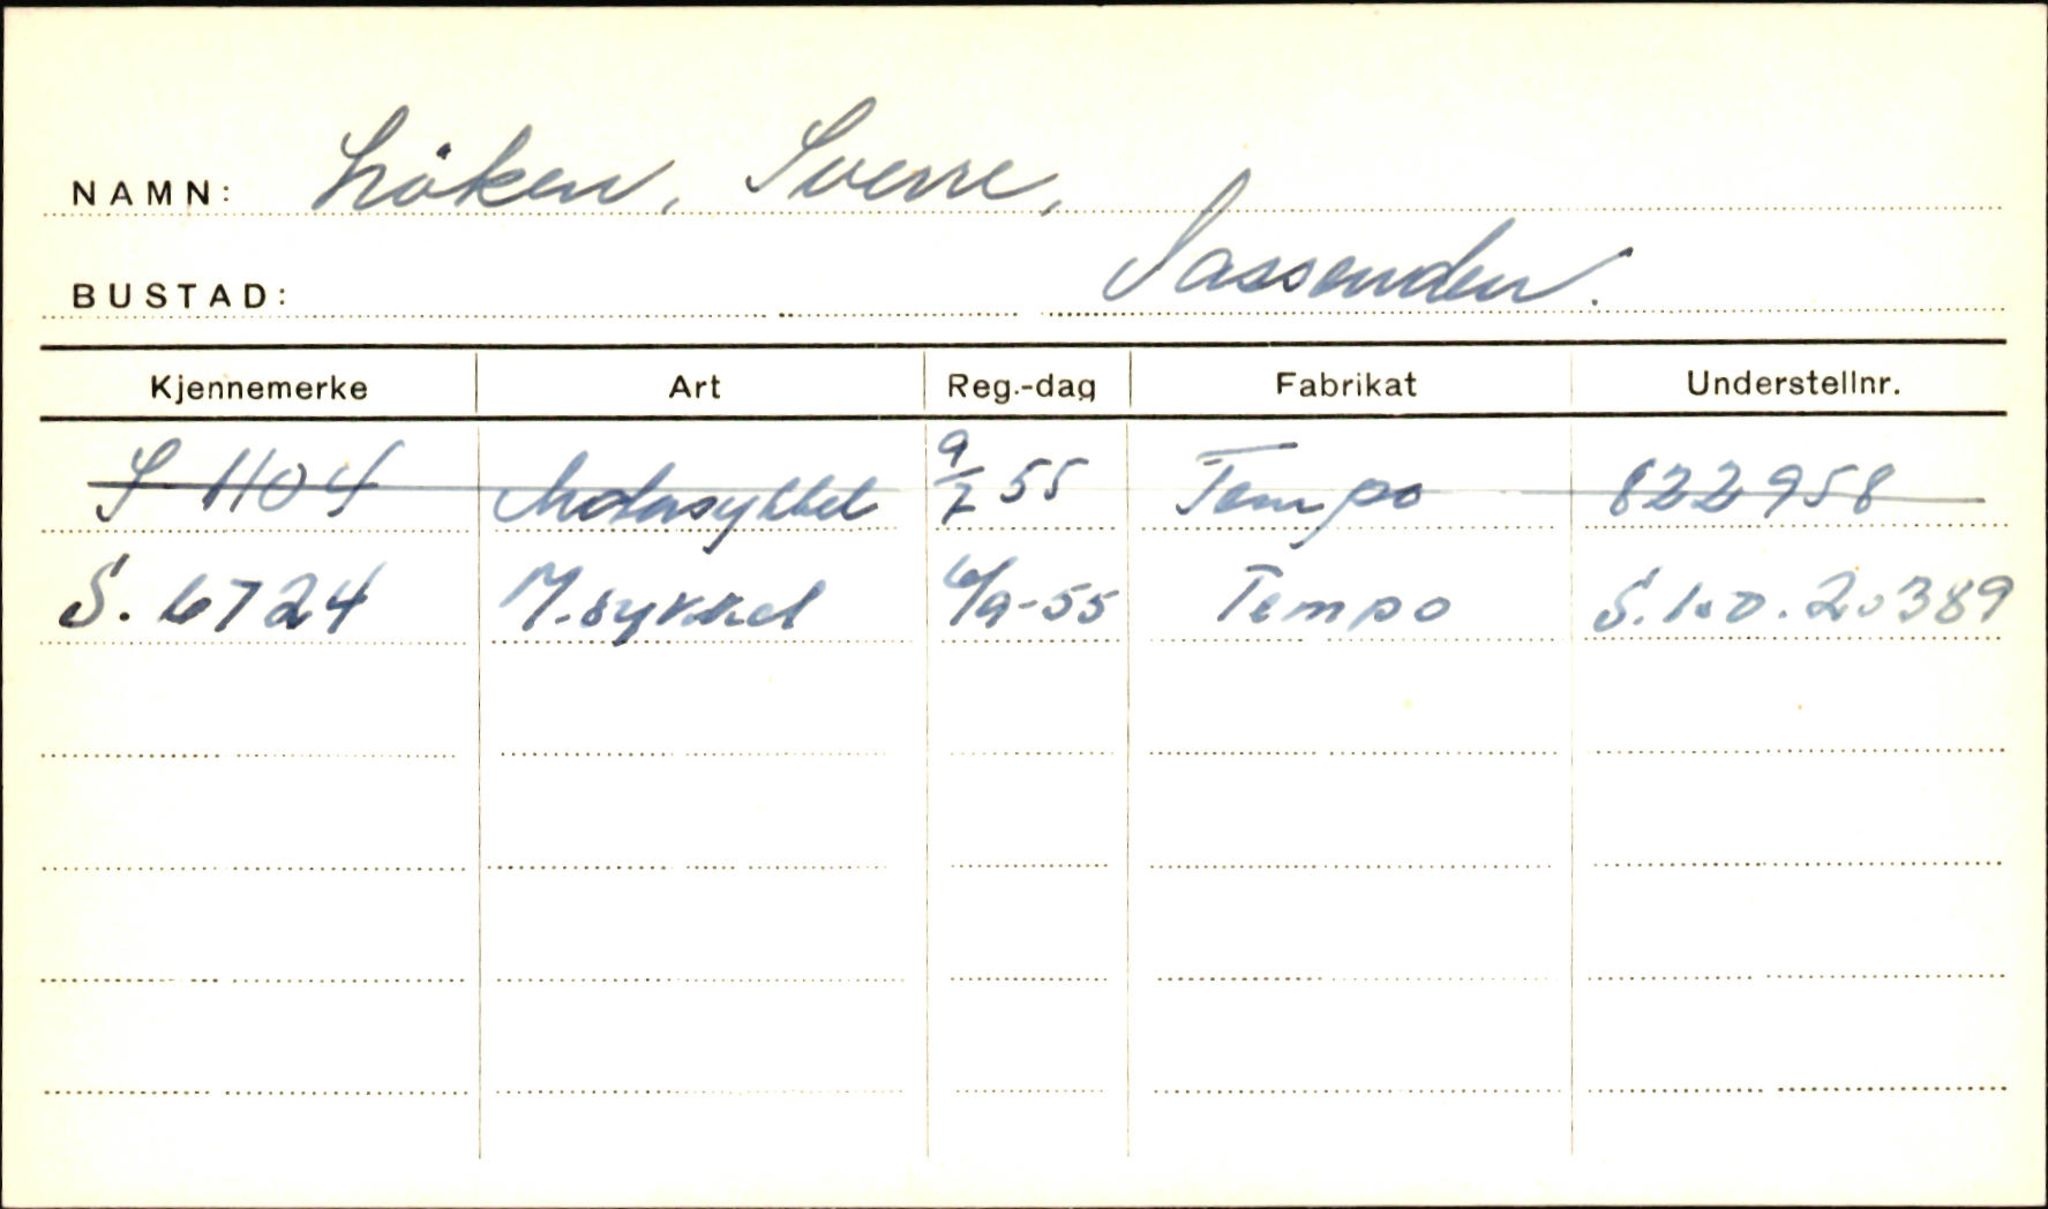 NAMN: Löken, Sverre,
BUSTAD: Sassenden.
Kjennemerke Art Reg.-dag Fabrikat Understellnr.
S 1104 Motorsykkel 9/7 55 Tempo 822958
S. 6724 M.sykkel 6/9-55 Tempo S.100.20389